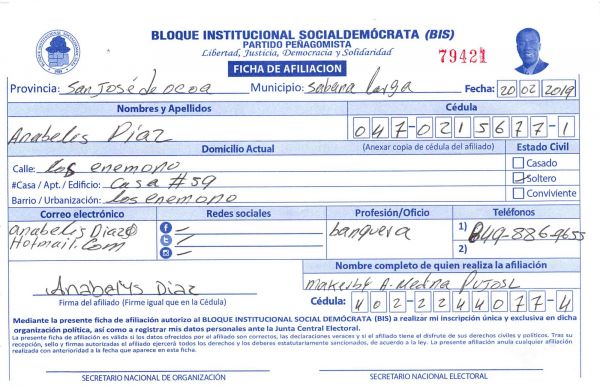 BLOQUE INSTITUCIONAL SOCIALDEMÓCRATA (BIS)
PARTIDO PEÑAGOMISTA
Libertad, Justicia, Democracia y Solidaridad
79421
FICHA DE AFILIACION
Provincia: San José de ocoa Municipio: Sabana larga Fecha: 20 02 2019
Nombres y Apellidos Cédula
Anabelis Díaz 047-0215677-1
Domicilio Actual (Anexar copia de cédula del afiliado) Estado Civil
Calle: los enemono Casado
#Casa / Apt. / Edificio: Casa #59 Soltero
Barrio / Urbanización: los enemono Conviviente
Correo electrónico Redes sociales Profesión/Oficio Teléfonos
anabelis Diaz@ banquera 1) 849-886-9655
Hotmail.Com 2)
Nombre completo de quien realiza la afiliación
Anabelys Diaz A. Medina
Firma del afiliado (Firme igual que en la Cédula) Cédula: 402-2244077-4
Mediante la presente ficha de afiliación autorizo al BLOQUE INSTITUCIONAL SOCIAL DEMÓCRATA (BIS) a realizar mi inscripción única y exclusiva en dicha
organización política, así como a registrar mis datos personales ante la Junta Central Electoral.
La presente ficha de afiliación es válida si los datos ofrecidos por el afiliado son correctos, las declaraciones veraces y si el afiliado tiene el disfrute de sus derechos civiles y políticos. Tras su
recepción, sello y firmas autorizadas el afiliado ejercerá todos los derechos y los deberes estatutariamente sancionados, de acuerdo a la ley. La presente afiliación anula cualquier afiliación
realizada con anterioridad a la fecha que aparece en esta ficha.
SECRETARIO NACIONAL DE ORGANIZACIÓN SECRETARIO NACIONAL ELECTORAL